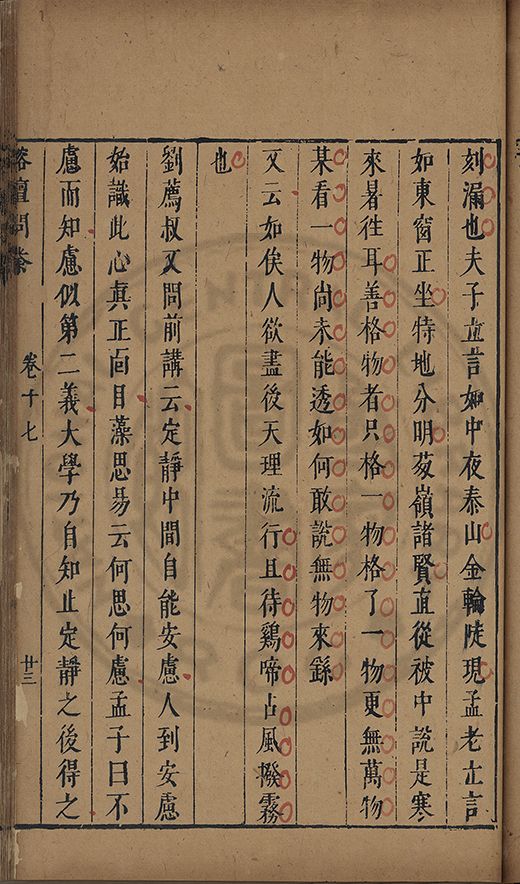 刻漏也夫子立言如中夜泰山金輪陡現孟老立言
如東窗正坐特地分明葱嶺諸賢直從被中說是寒
來暑徃耳善格物者只格一物格了一物更無萬物
某看一物尚未能透如何敢說無物來繇
又云如俟人欲盡後天理流行且待鷄啼占風撥霧
也
劉薦叔又問前講云定靜中間自能安慮人到安慮
始識此心真正面目藻思昜云何思何慮孟子曰不
慮而知慮似第二義大學乃自知止定靜之後得之
榕壇問業
卷十七
廿三